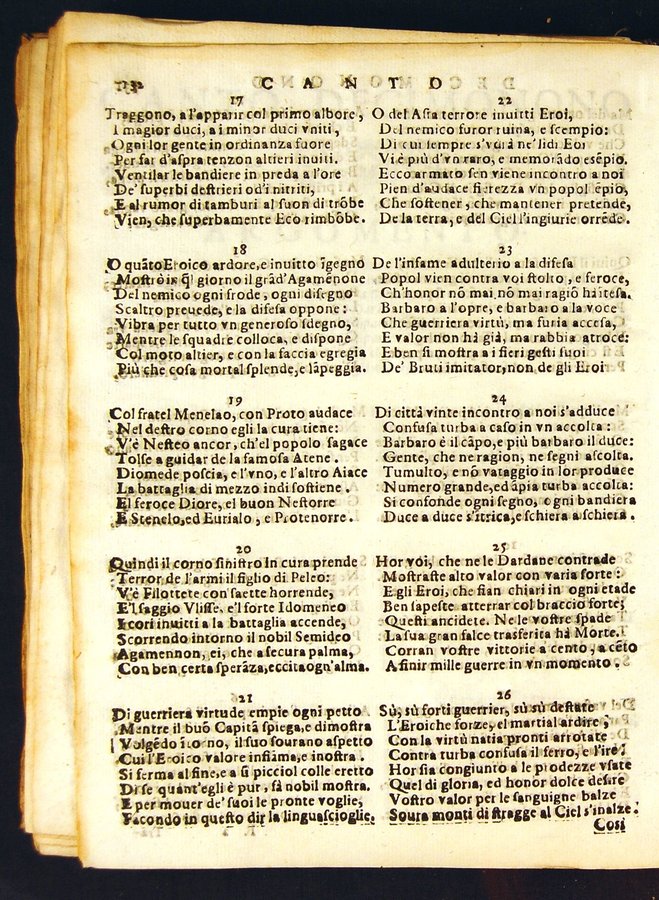 132 CANTO
17
Traggono, a l'apparir col primo albore,
I magior duci, a i minor duci vniti,
Ogni lor gente in ordinanza fuore
Per far d'aspra tenzon altieri inuiti.
Ventilar le bandiere in preda a l'ore
De' superbi destrieri od'i nitriti,
E al rumor di tamburi al suon di trõbe
Vien, che superbamente Eco rimbõbe.
18
O quãto Eroico ardore, e inuitto ĩgegno
Mostrò in q̃l giorno il grãd'Agamẽnone
Del nemico ogni frode, ogni disegno
Scaltro preuede, e la difesa oppone:
Vibra per tutto vn generoso sdegno,
Mentre le squadre colloca, e dispone
Col moto altier, e con la faccia egregia
Più che cosa mortal splende, e lãpeggia.
19
Col fratel Menelao, con Proto audace
Nel destro corno egli la cura tiene:
V'è Nesteo ancor, ch'el popolo sagace
Tolse a guidar de la famosa Atene.
Diomede poscia, e l'vno, e l'altro Aiace
La battaglia di mezzo indi sostiene.
El feroce Diore, el buon Nestorre
E Stenelo, ed Eurialo, e Protenorre.
20
Quindi il corno sinistro in cura prende
Terror de l'armi il figlio di Peleo:
V'è Filottete con saette horrende,
E'l saggio Vlisse, e'l forte Idomeneo
I cori inuitti a la battaglia accende,
Scorrendo intorno il nobil Semideo
Agamennon, ei, che a secura palma,
Con ben certa sperãza, eccita ogn'alma.
21
Di guerriera virtude empie ogni petto
Mentre il buõ Capitã spiega, e dimostra
Volgẽdo ĩtorno, il suo sourano aspetto
Cui l'Eroico valore infiãma, e inostra.
Si ferma al fine, e a sì picciol colle eretto
Di se quant'egli è pur, fà nobil mostra.
E per mouer de' suoi le pronte voglie,
Facondo in questo dir la lingua scioglie.
22
O del Asta terrore inuitti Eroi,
Del nemico furor ruina, e scempio:
Di cui sempre s'vdirà ne' lidi Eoi
Vi è più d'vn raro, e memorãdo esẽpio.
Ecco armato sen viene incontro a noi
Pien d'audace fierezza vn popol ẽpio,
Che sostener, che mantener pretende,
De la terra, e del Ciel l'ingiurie orrẽde.
23
De l'infame adulterio a la difesa
Popol vien contra voi stolto, e feroce,
Ch'honor nõ mai, nõ mai ragiõ hà ĩtesa.
Barbaro a l'opre, e barbaro a la voce
Che guerriera virtù, ma furia accesa,
E valor non hà già, ma rabbia atroce:
E ben si mostra a i fieri gesti suoi
De' Bruti imitator, non de gli Eroi
24
Di città vinte incontro a noi s'adduce
Confusa turba a caso in vn accolta:
Barbaro è il cãpo, e più barbaro il duce:
Gente, che ne ragion, ne segni ascolta.
Tumulto, e nõ vãtaggio in lor produce
Numero grande, ed ãpia turba accolta:
Si confonde ogni segno, e ogni bandiera
Duce a duce s'ĩtrica, e schiera a schiera.
25
Hor voi, che ne le Dardane contrade
Mostraste alto valor con varia sorte:
E gli Eroi, che fian chiari in ogni etade
Ben sapeste atterrar col braccio forte;
Questi ancidete. Ne le vostre spade
La sua gran falce trasferita hà Morte.
Corran vostre vittorie a cento, a cẽto
A finir mille guerre in vn momento.
26
Sù, sù forti guerrier, sù sù destate
L'Eroiche forze, el martial ardire;
Con la virtù natia pronti arrotate
Contra turba confusa il ferro, e l'ire!
Hor sia congiunto a le prodezze vsate
Quel di gloria, ed honor dolce desire
Vostro valor per le sanguigne balze
Soura monti di stragge al Ciel s'inalze.
Cosi